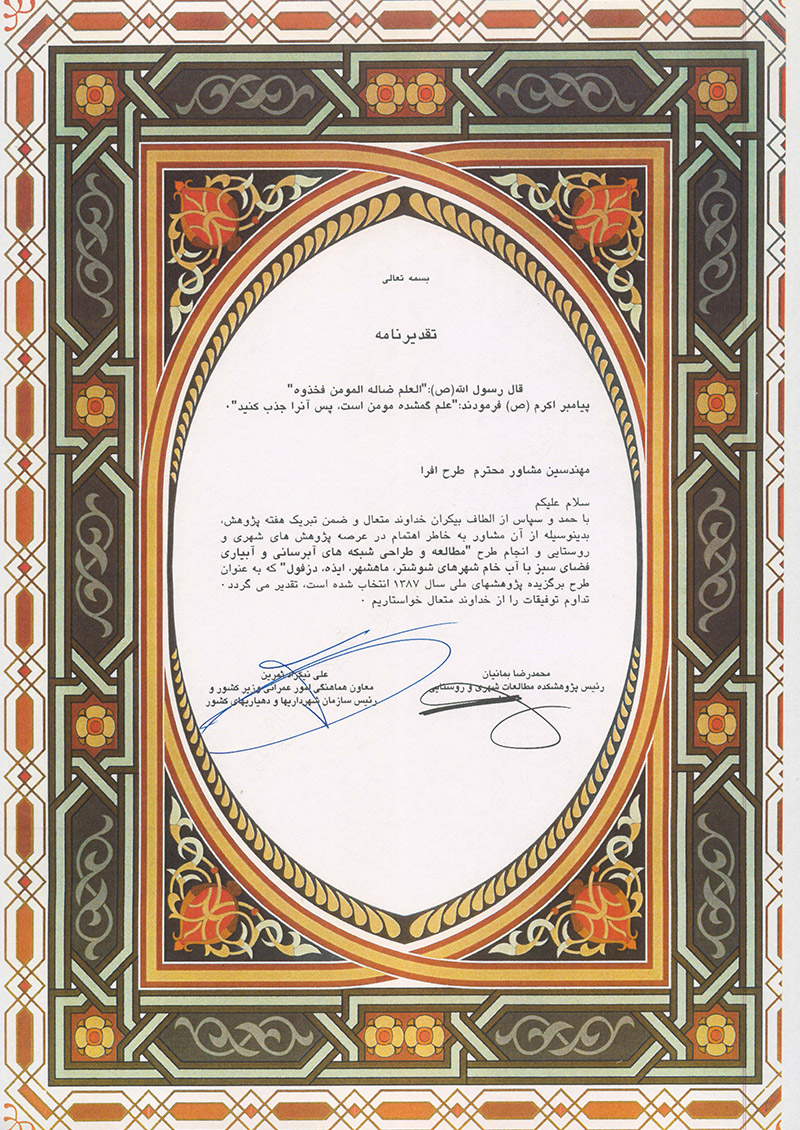 بسمه تعالی
تقدیرنامه
قال رسول الله(ص):"العلم ضاله المومن فخذوه"
پیامبر اکرم (ص) فرمودند:"علم گمشده مومن است، پس آنرا جذب کنید"۰
مهندسین مشاور محترم طرح افرا
سلام علیکم
با حمد و سپاس از الطاف بیکران خداوند متعال و ضمن تبریک هفته پژوهش،
بدینوسیله از آن مشاور به خاطر اهتمام در عرصه پژوهش های شهری و
روستایی و انجام طرح "مطالعه و طراحی شبکه های آبرسانی و آبیاری
فضای سبز با آب خام شهرهای شوشتر، ماهشهر، ایذه، دزفول" که به عنوان
طرح برگزیده پژوهشهای ملی سال ۱۳۸۷ انتخاب شده است، تقدیر می گردد۰
تداوم توفیقات را از خداوند متعال خواستاریم ۰
محمدرضا بمانیان
رئیس پژوهشکده مطالعات شهری و روستایی
علی نیکزاد ثمرین
معاون هماهنگی امور عمرانی وزیر کشور و
رئیس سازمان شهرداریها و دهیاریهای کشور